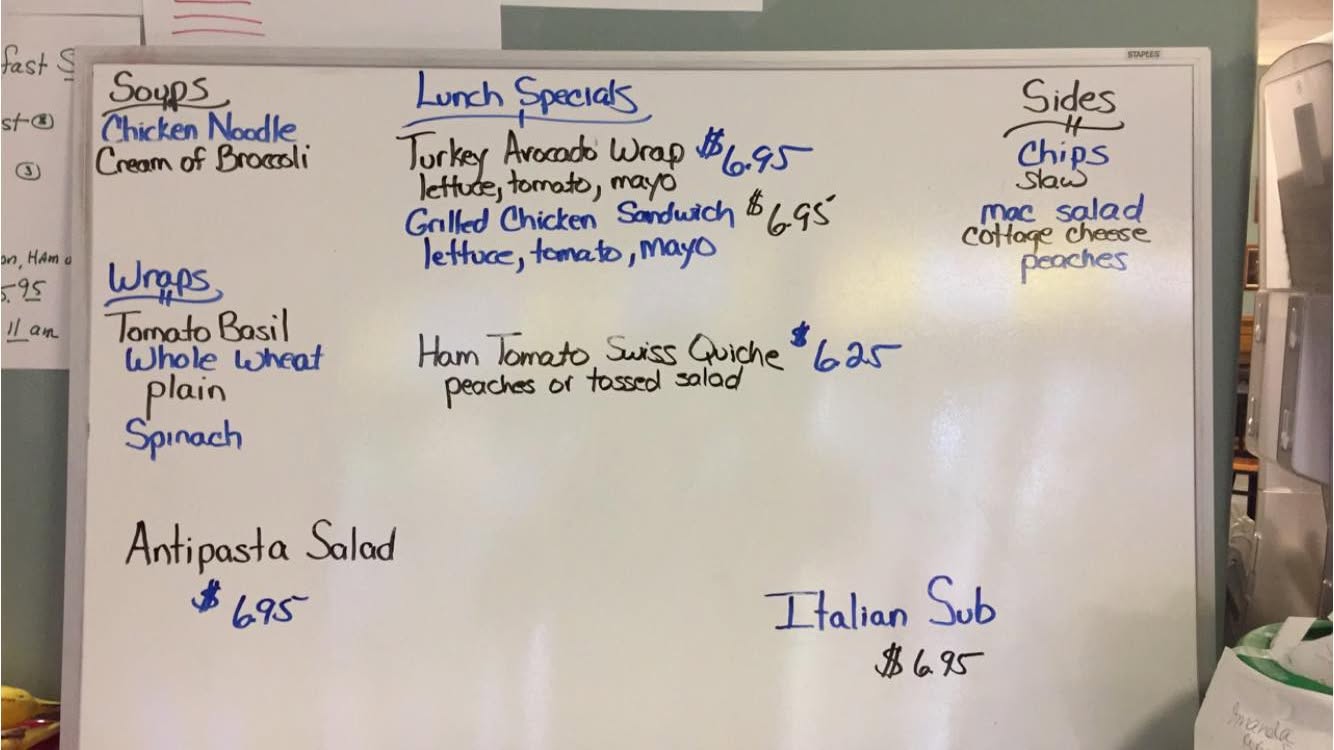 fast S
st
3
on, HAM
5.95
11 am
STAPLES
Soups
Chicken Noodle
Cream of Broccoli
Wraps
Tomato Basil
Whole Wheat
plain
Spinach
Antipasta Salad
$ 6.95
Lunch Specials
Turkey Avocado Wrap $6.95
lettuce, tomato, mayo
Grilled Chicken Sandwich $6.95
lettuce, tomato, mayo
Ham Tomato Swiss Quiche $6.25
peaches or tossed salad
Sides
Chips
slaw
mac salad
cottage cheese
peaches
Italian Sub
$ 6.95
Amanda